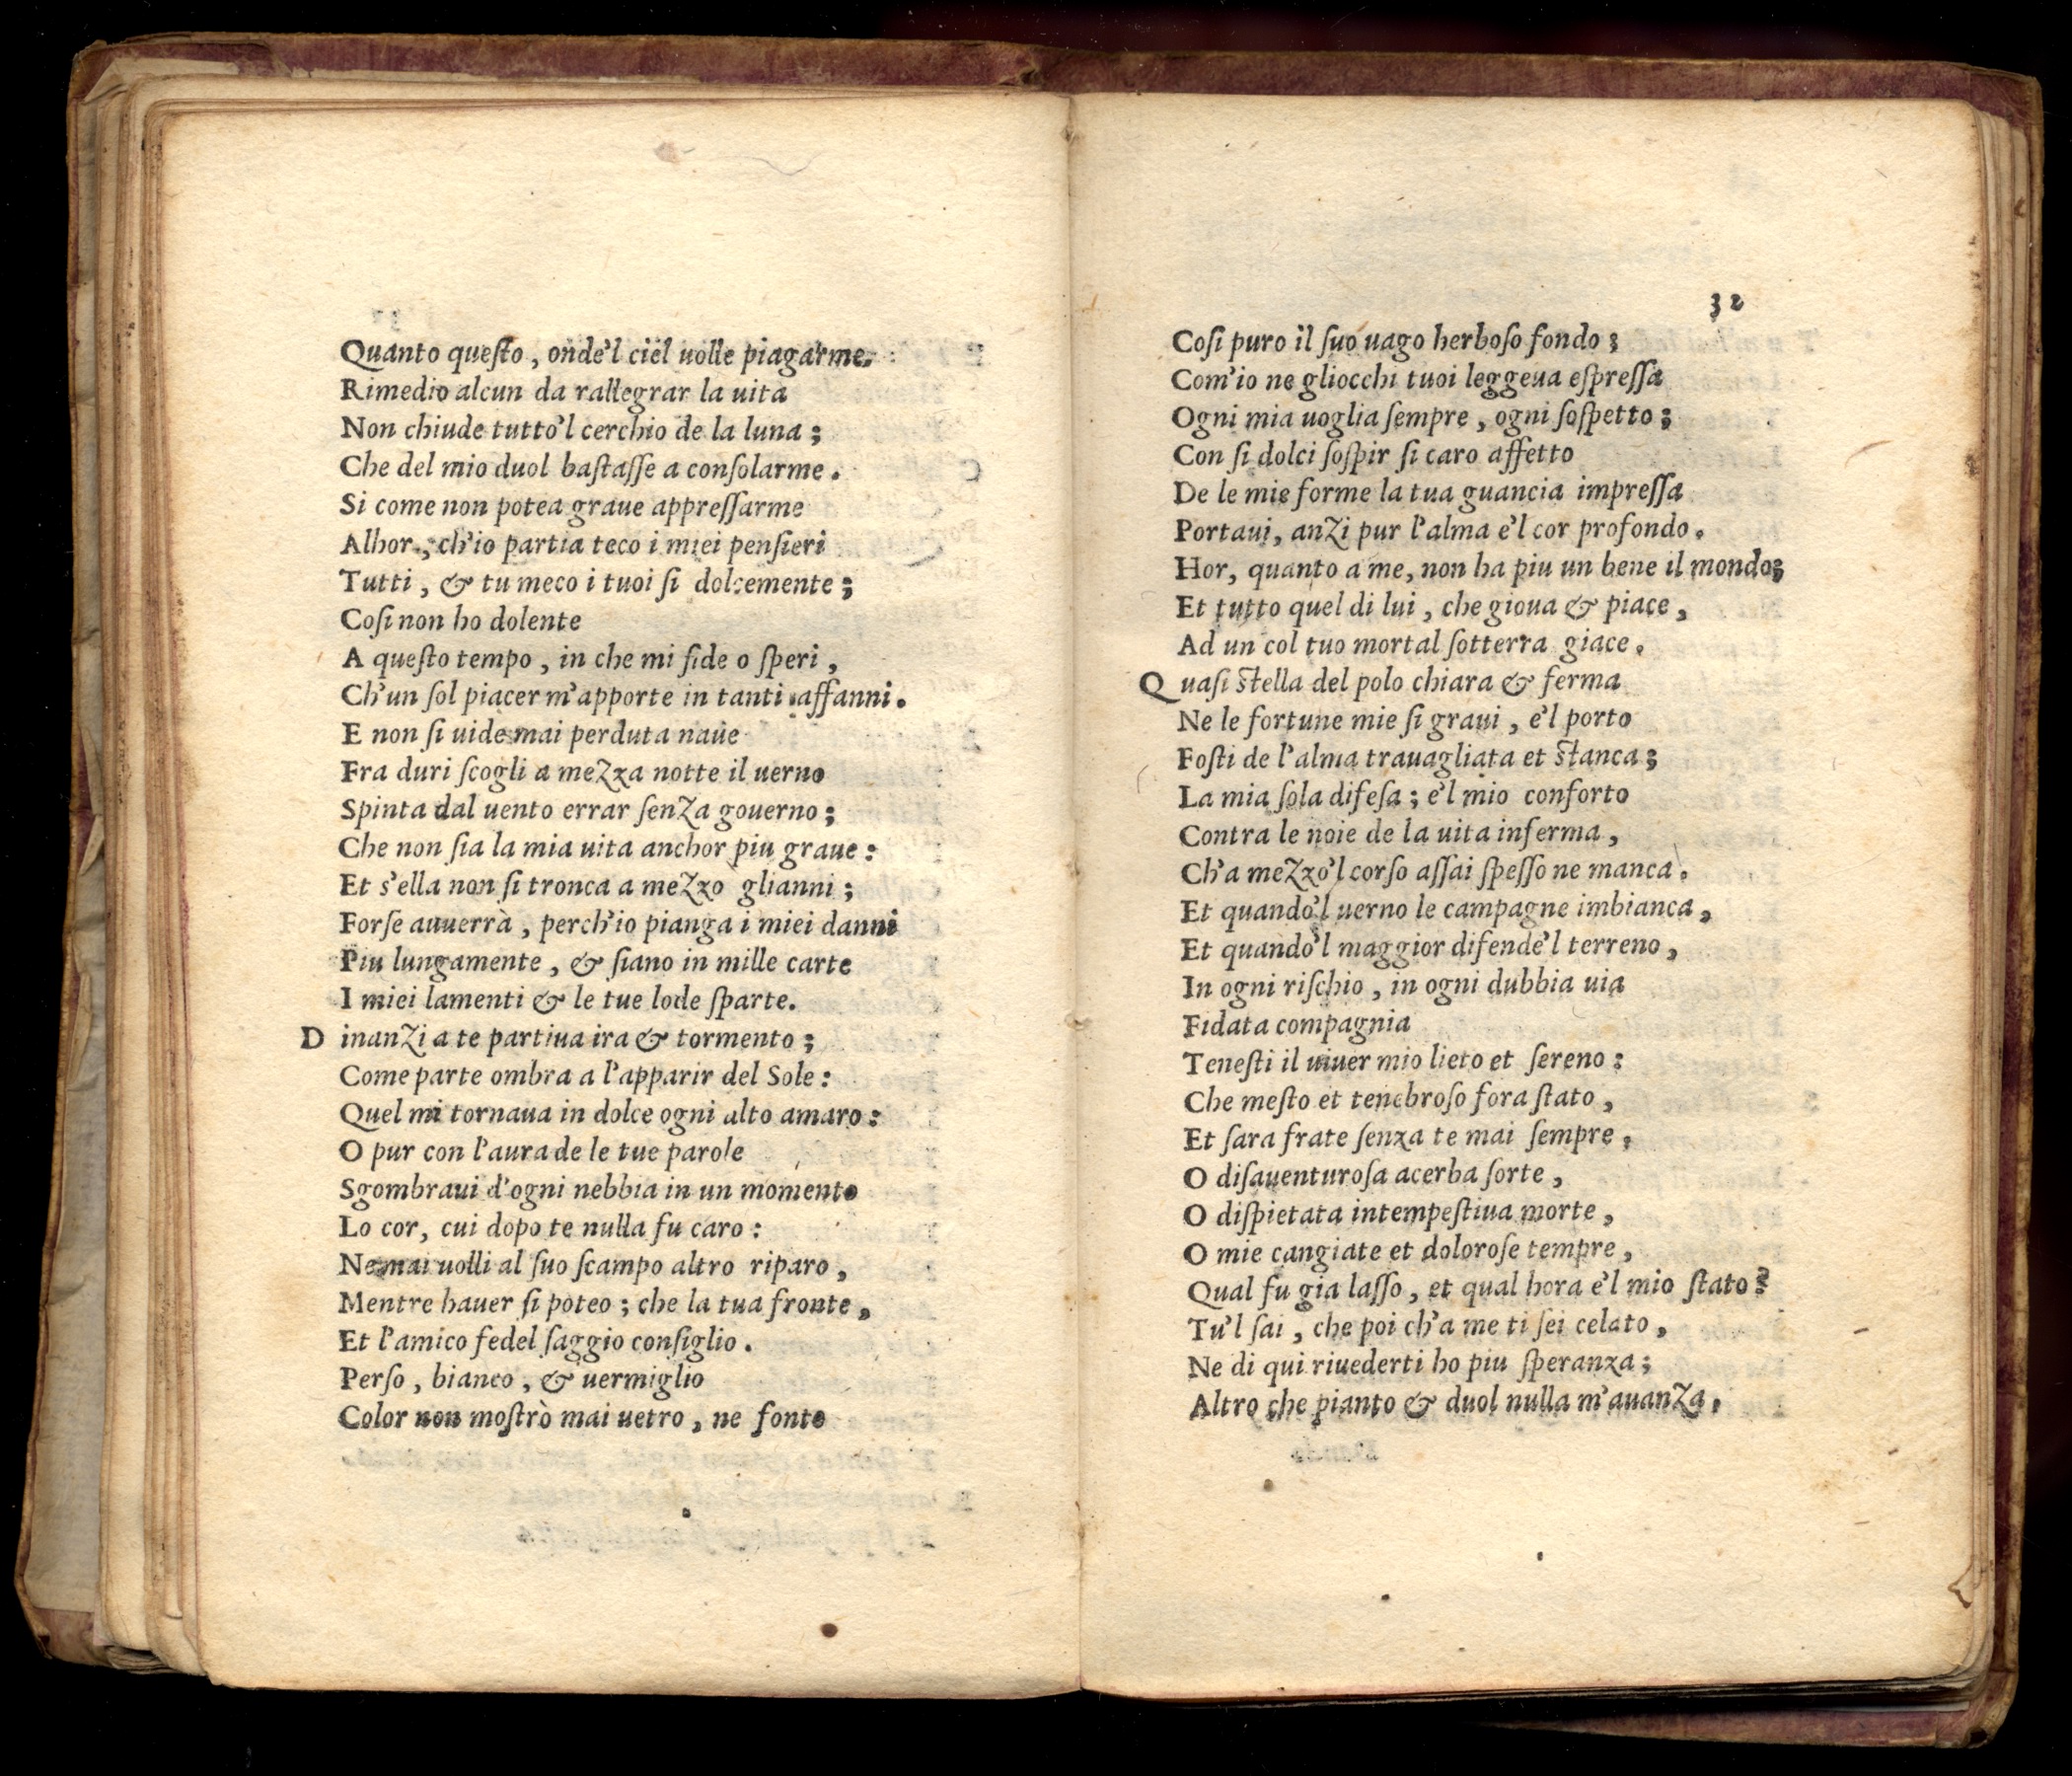 Quanto queſto, onde'l ciel uolle piagarme.
Rimedio alcun da rallegrar la uita
Non chiude tutto'l cerchio de la luna;
Che del mio duol baſtaſſe a conſolarme.
Si come non potea graue appreſſarme
Alhor, ch'io partia teco i miei penſieri
Tutti, & tu meco i tuoi ſi dolcemente;
Coſi non ho dolente
A queſto tempo, in che mi fide o ſperi,
Ch'un ſol piacer m'apporte in tanti affanni.
E non ſi uide mai perduta naue
Fra duri ſcogli a mezza notte il uerno
Spinta dal uento errar ſenza gouerno;
Che non ſia la mia uita anchor piu graue:
Et s'ella non ſi tronca a mezzo glianni;
Forſe auuerrà, perch'io pianga i miei danni
Piu lungamente, & ſiano in mille carte
I miei lamenti & le tue lode ſparte.
D inanzi a te partiua ira & tormento;
Come parte ombra a l'apparir del Sole:
Quel mi tornaua in dolce ogni alto amaro:
O pur con l'aura de le tue parole
Sgombraui d'ogni nebbia in un momento
Lo cor, cui dopo te nulla fu caro:
Ne mai uolli al ſuo ſcampo altro riparo,
Mentre hauer ſi poteo; che la tua fronte,
Et l'amico fedel ſaggio conſiglio.
Perſo, bianco, & uermiglio
Color non moſtrò mai uetro, ne fonte
32
Coſi puro il ſuo uago herboſo fondo;
Com'io ne gliocchi tuoi leggeua eſpreſſa
Ogni mia uoglia ſempre, ogni ſoſpetto;
Con ſi dolci ſoſpir ſi caro affetto
De le mie forme la tua guancia impreſſa
Portaui, anzi pur l'alma e'l cor profondo.
Hor, quanto a me, non ha piu un bene il mondo;
Et tutto quel di lui, che gioua & piace,
Ad un col tuo mortal ſotterra giace.
Q uaſi ſtella del polo chiara & ferma
Ne le fortune mie ſi graui, e'l porto
Foſti de l'alma trauagliata et ſtanca;
La mia ſola difeſa; e'l mio conforto
Contra le noie de la uita inferma,
Ch'a mezzo'l corſo aſſai ſpeſſo ne manca.
Et quando'l uerno le campagne imbianca,
Et quando'l maggior difende'l terreno,
In ogni riſchio, in ogni dubbia uia
Fidata compagnia
Teneſti il uiuer mio lieto et ſereno:
Che meſto et tenebroſo fora ſtato,
Et ſara frate ſenza te mai ſempre,
O diſauenturoſa acerba ſorte,
O diſpietata intempeſtiua morte,
O mie cangiate et doloroſe tempre,
Qual fu gia laſſo, et qual hora e'l mio ſtato?
Tu'l ſai, che poi ch'a me ti ſei celato,
Ne di qui riuederti ho piu ſperanza;
Altro che pianto & duol nulla m'auanza.